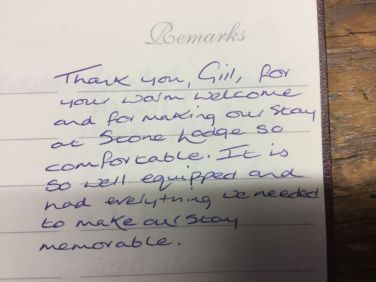 Remarks
Thank you, Gill, for
your warm welcome
and for making our stay
at Stone Lodge so
comfortable. It is
so well equipped and
had everything we needed
to make our stay
memorable.